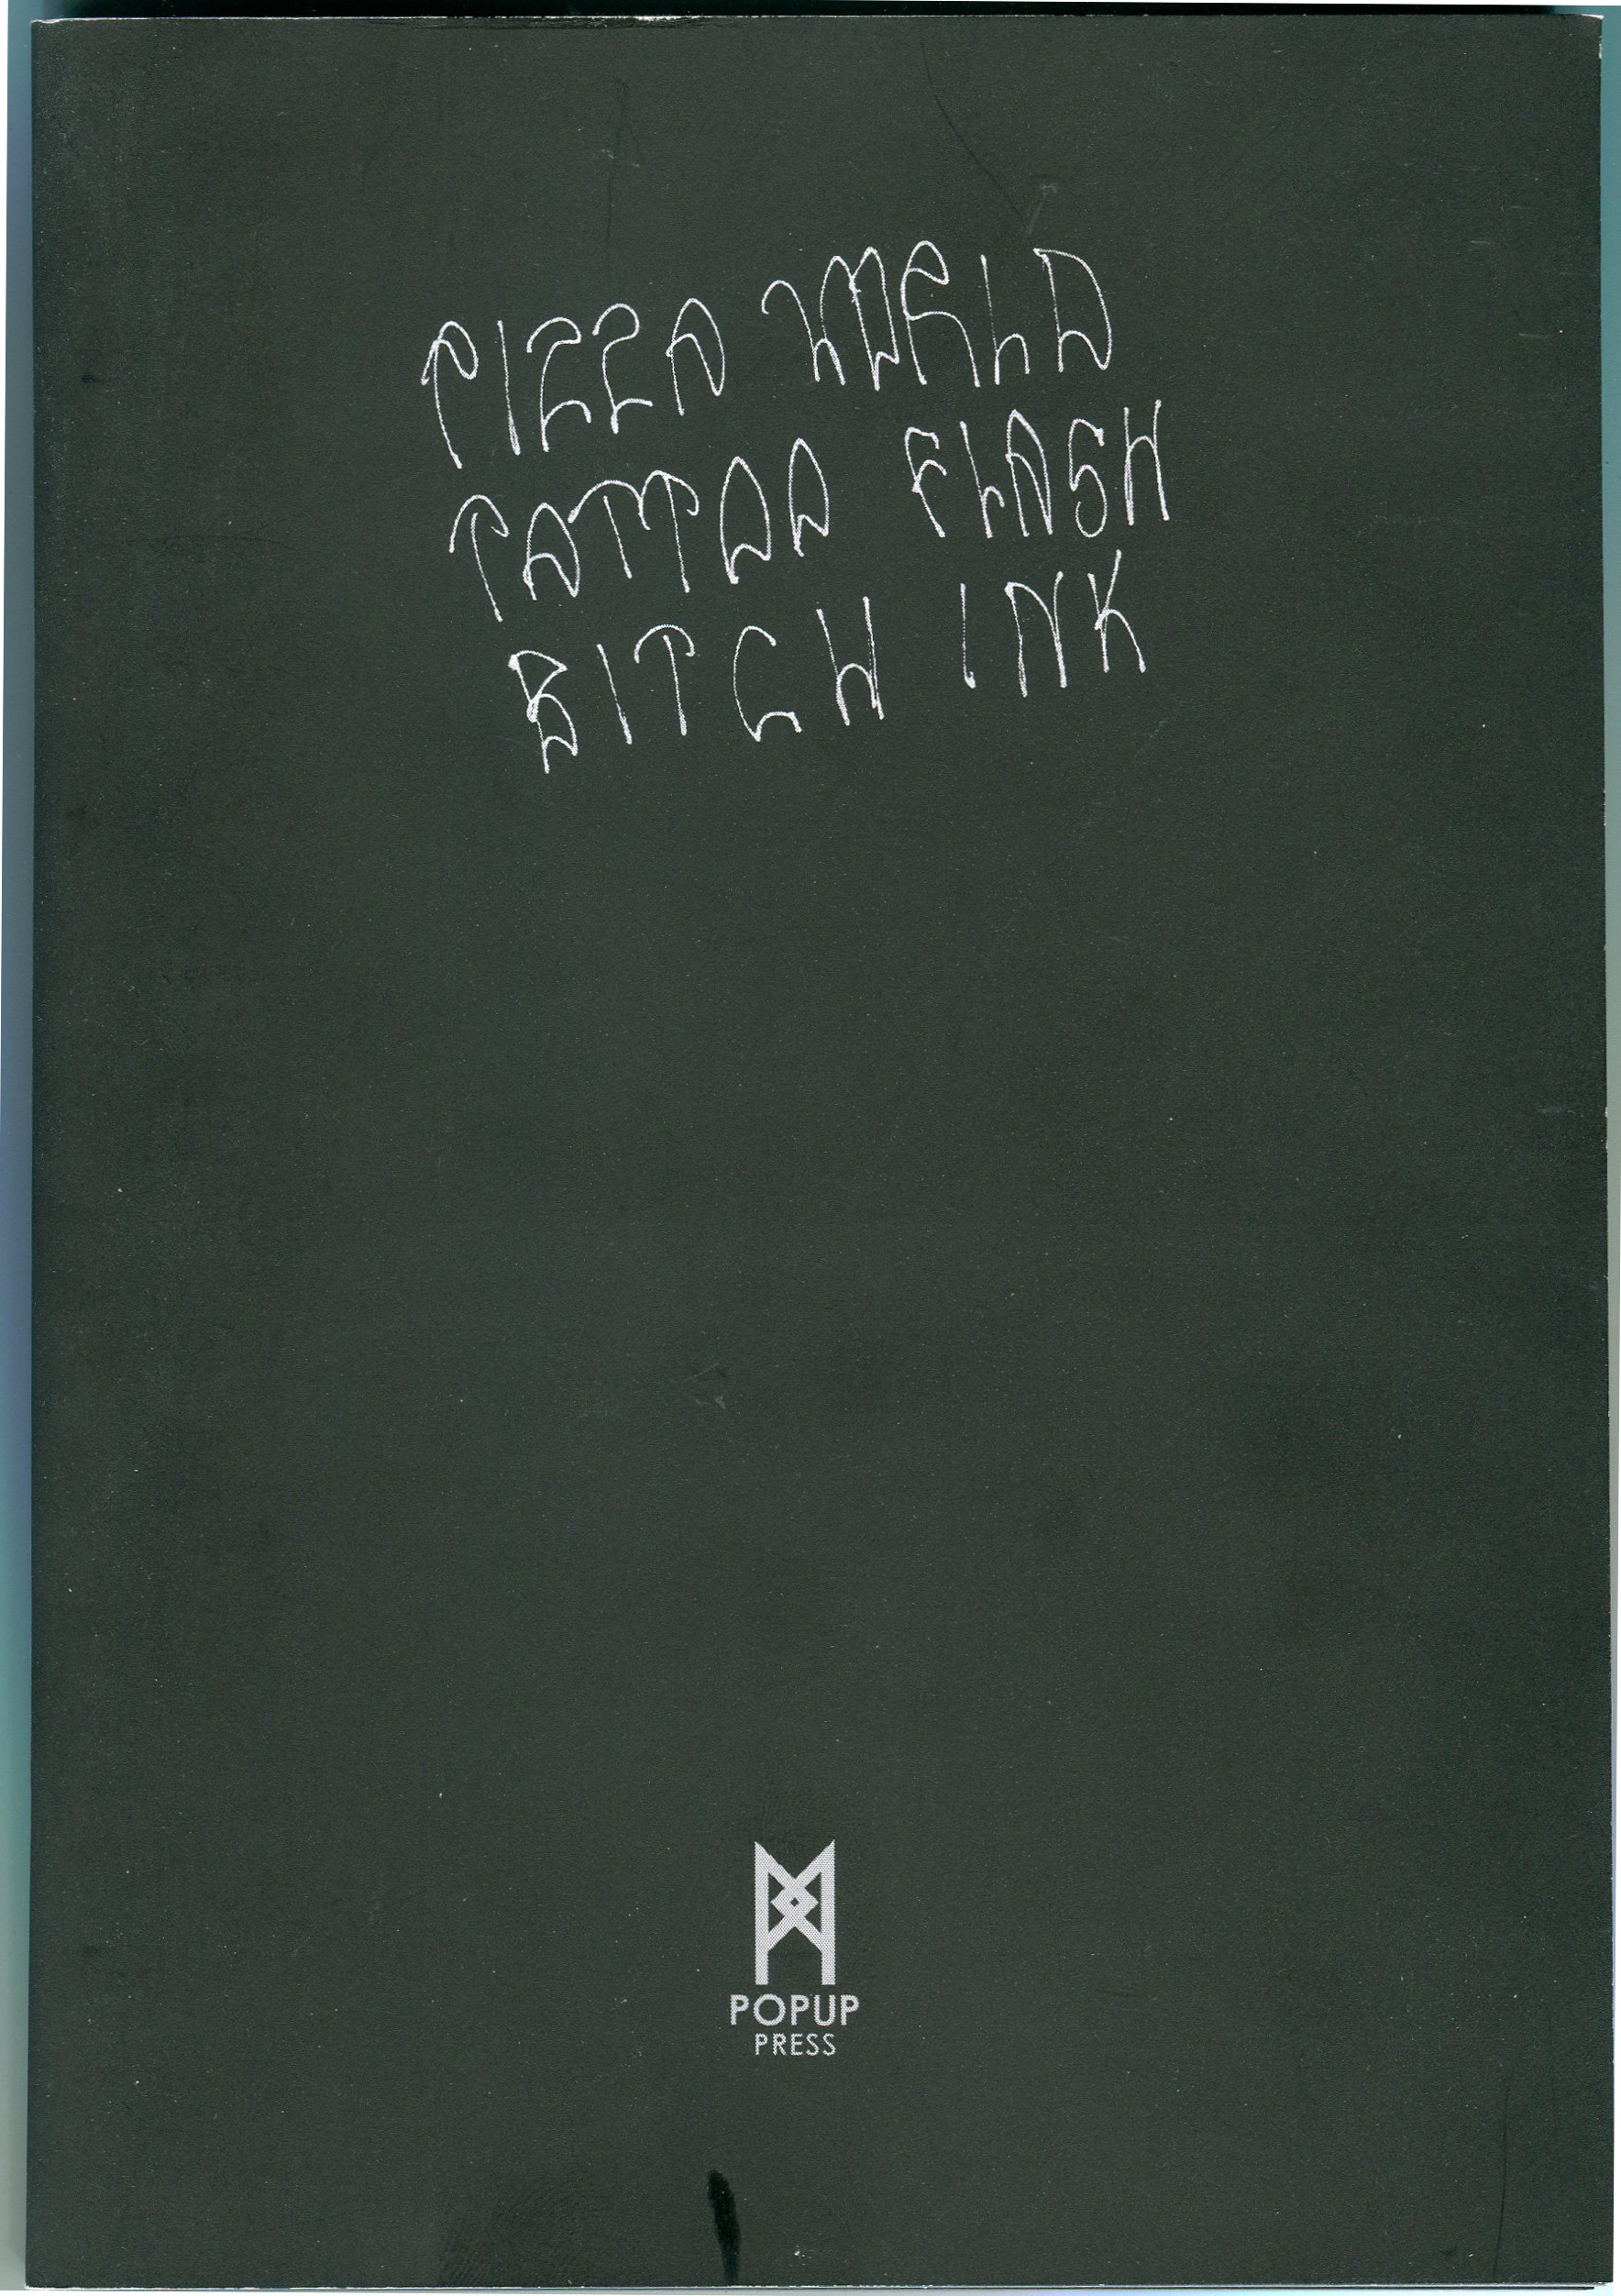 PIZZA WORLD
TATTOO FLASH
BITCH INK
POPUP
PRESS